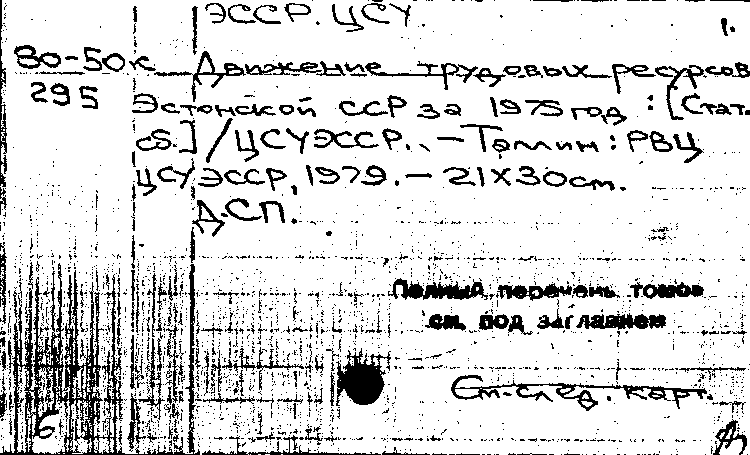 ЭССР. ЦСУ.
1.
80-50к Движение трудовых ресурсов
295 Эстонской ССР за 1975 год : [Стат.
сб.] / ЦСУ ЭССР. – Таллин : РВЦ
ЦСУ ЭССР, 1979. – 21X30см.
Д.С.П.
Полный перечень томов
см. под заглавием
См. след. карт.
6